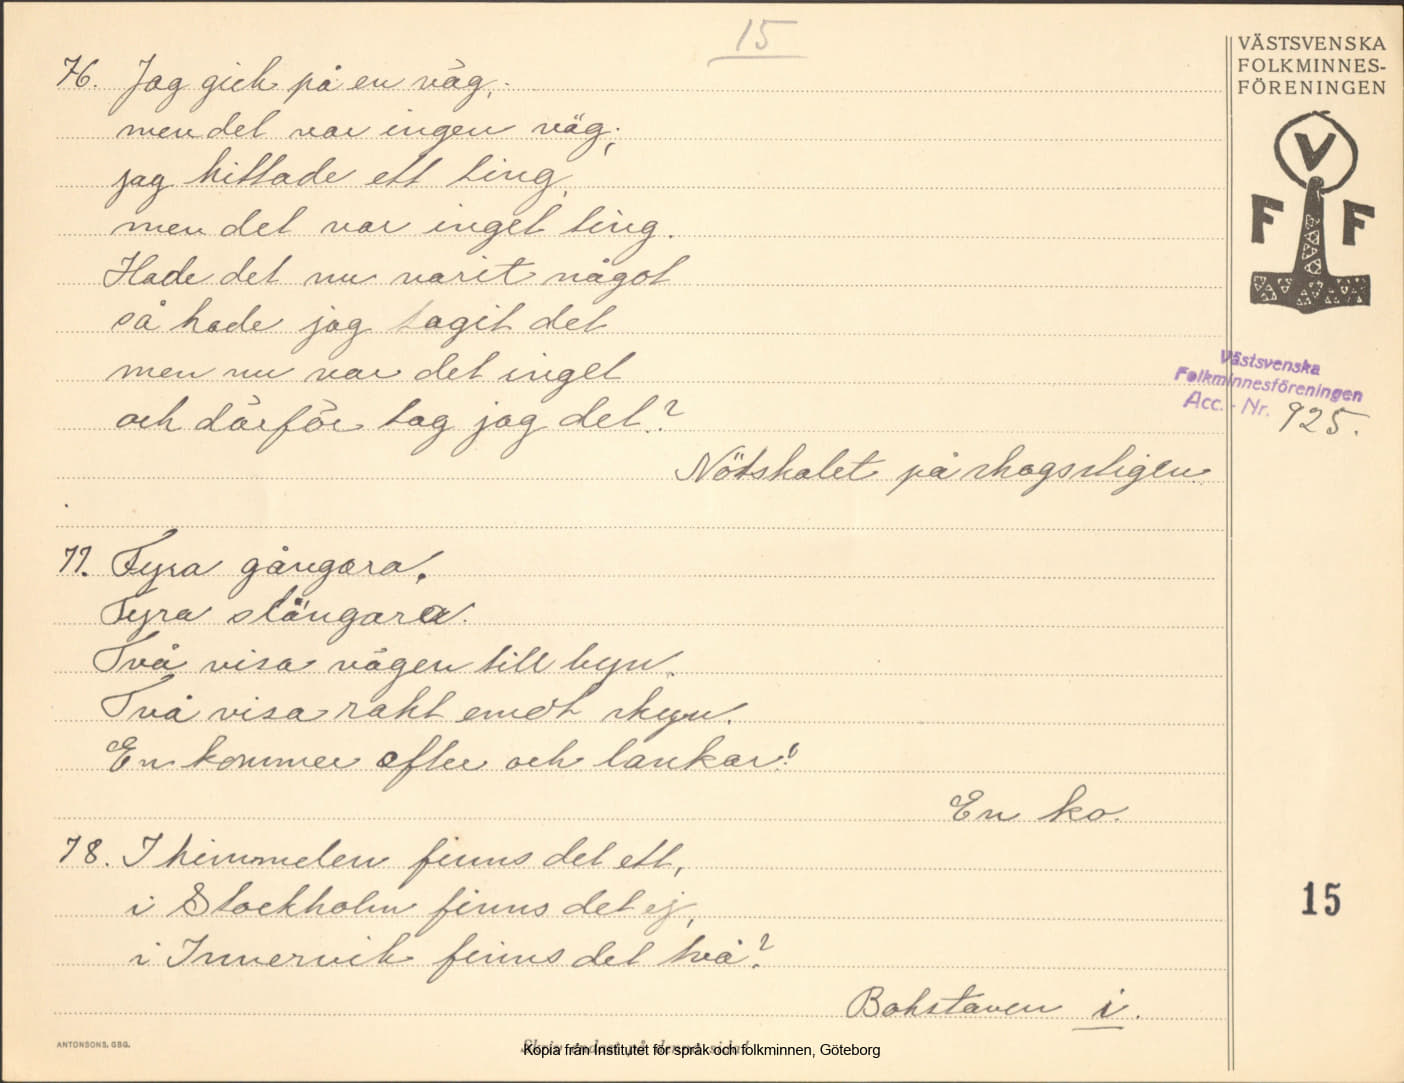 15
VÄSTSVENSKA
FOLKMINNES-
FÖRENINGEN
V
F F
Västsvenska
Folkminnesföreningen
Acc. - Nr. 925.
76. Jag gick på en väg,
men det var ingen väg;
jag hittade ett ting,
men det var inget ting.
Hade det nu varit något
så hade jag tagit det
men nu var det inget
och därför tog jag det?
Nötskalet på skogsstigen.
77. Fyra gångara,
Fyra slängara.
Två visa vägen till byn.
Två visa rakt emot skyn.
En kommer efter och lankar?
En ko.
78. I himmelen finns det ett,
i Stockholm finns det ej,
i Innervik finns det två?
Bokstaven i.
15
ANTONSONS, GBG.
Skriv endast på denna sida!
Kopia från Institutet för språk och folkminnen, Göteborg